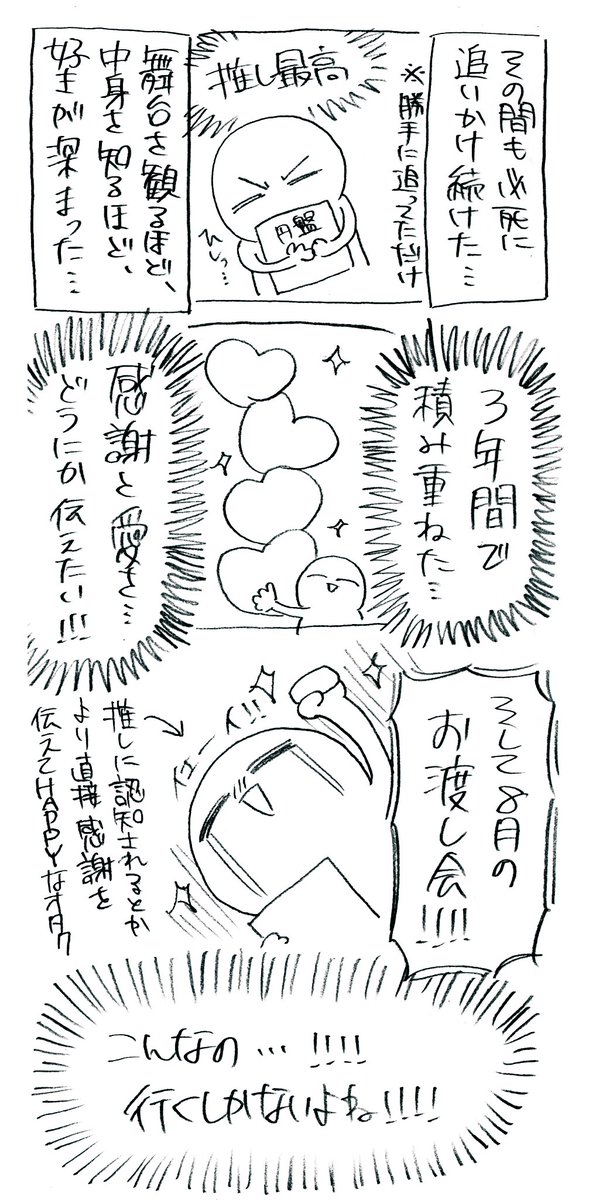 その間も必死に
追いかけ続けた…
※勝手に追ってただけ
推し最高
円盤
ひしっ…
舞台を観るほど、
中身を知るほど、
好きが深まった…
3年間で
積み重ねた…
感謝と愛を…
どうにか伝えたい!!!
そして8月の
お渡し会!!!!
イェーイ!!
推しに認知されるとか
より直接感謝を
伝えてHAPPYなオタク
こんなの…!!!!
行くしかないよね!!!!